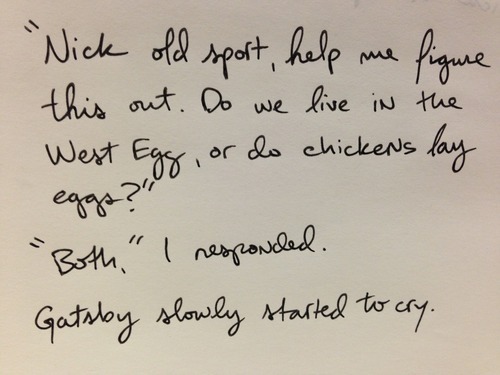 "Nick old sport, help me figure
this out. Do we live in the
West Egg, or do chickens lay
eggs?"
"Both," I responded.
Gatsby slowly started to cry.